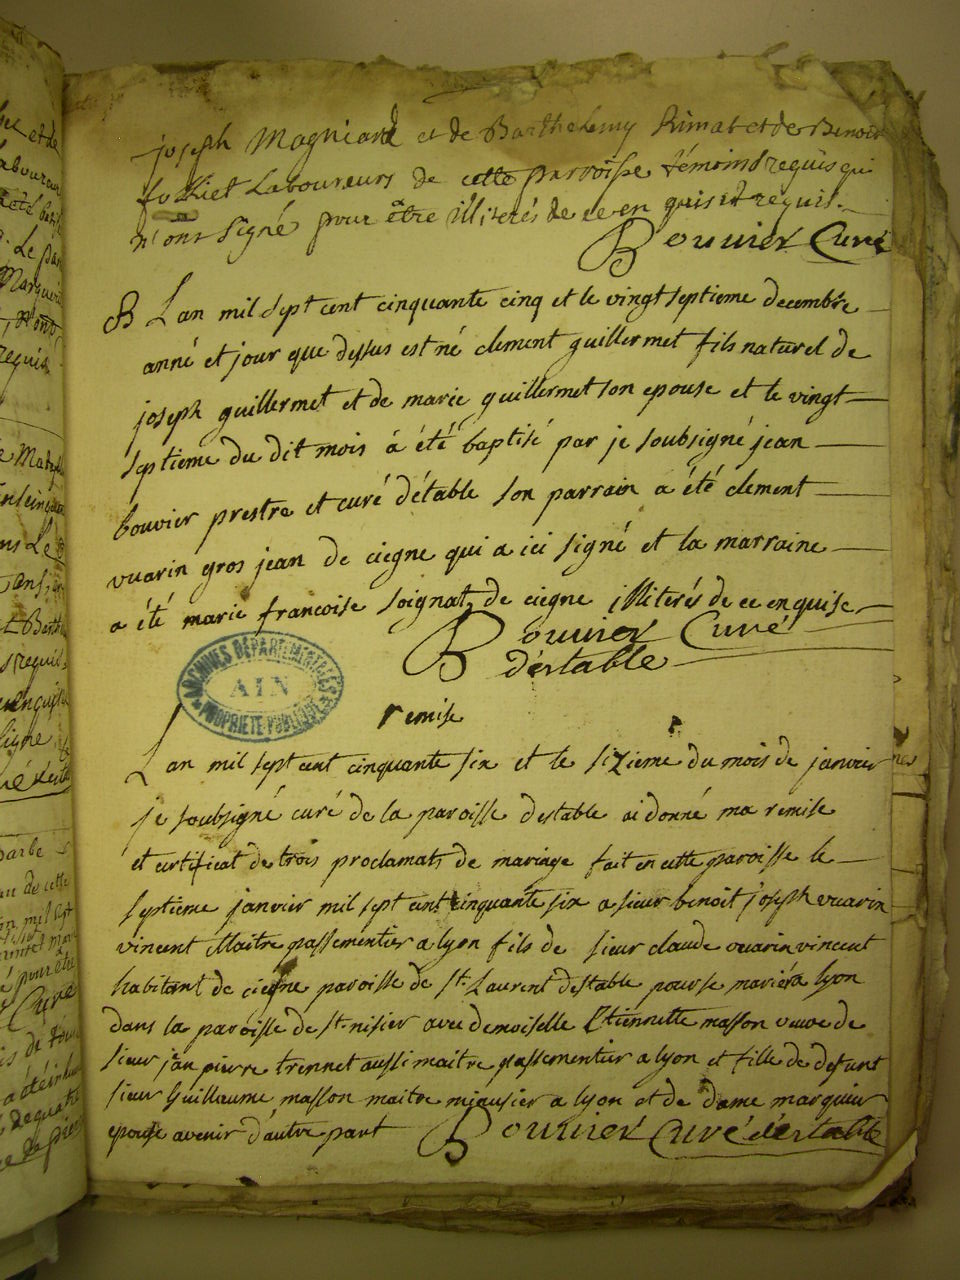 joseph Magniard et de Barthelemy Rimat et de Benoit
Laboureurs de cette parroisse témoins requis qui
n'ont signé pour être illiterés de ce en quis et requis.
Bouvier Curé
B Lan mil sept cent cinquante cinq et le vingt septieme decembre
anné et jour que dessus est né clement guillermet fils naturel de
joseph guillermet et de marie guillermet son epouse et le vingt
septieme du dit mois á été baptisé par je soubsigné jean
bouvier prestre et curé détable son parrain a été clement
vuarin gros jean de ciegne qui a ici signé et la marraine
a été marie francoise soignat de ciegne illiterés de ce enquise
Bouvier Curé
déstable
ARCHIVES DÉPARTEMENTALES
AIN
PROPRIÉTÉ PUBLIQUE
remise
Lan mil sept cent cinquante six et le sizieme du mois de janvier
je soubsigné curé de la paroisse destable ai donné ma remise
et certificat de trois proclamats de mariage fait en cette paroisse le
septieme janvier mil sept cent cinquante six a sieur benoit joseph vuarin
vincent Maitre passementier a lyon fils de sieur claude vuarin vincent
habitant de ciegne paroisse de st. Laurent destable pour se marier a lyon
dans la paroisse de st. nisier avec demoiselle Etiennette masson veuve de
sieur jean pierre trennet aussi maitre passementier a lyon et fille de defunt
sieur Guillaume masson maitre a lyon et de dame
epouse avenir d'autre part Bouvier Curé déstable